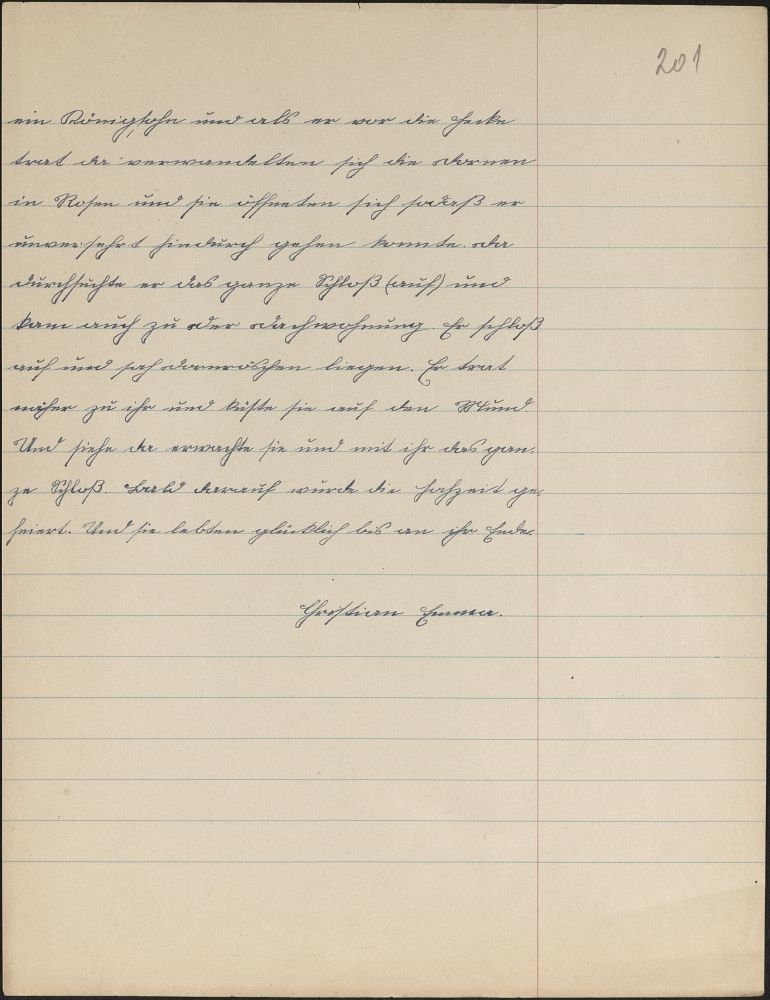 201
ein Königssohn und als er vor die Hecke
trat da verwandelten sich die Dornen
in Rosen und sie öffneten sich sodaß er
unversehrt hindurch gehen konnte. Da
durchsuchte er das ganze Schloß (auf) und
kam auch zu der Dachwohnung. Er schloß
auf und sah Dornröschen liegen. Er trat
näher zu ihr und küste sie auf den Mund.
Und siehe da erwachte sie und mit ihr das gan-
ze Schloß. Bald darauf wurde die Hochzeit ge-
feiert. Und sie lebten glücklich bis an ihr Ende.
Christian Emma.